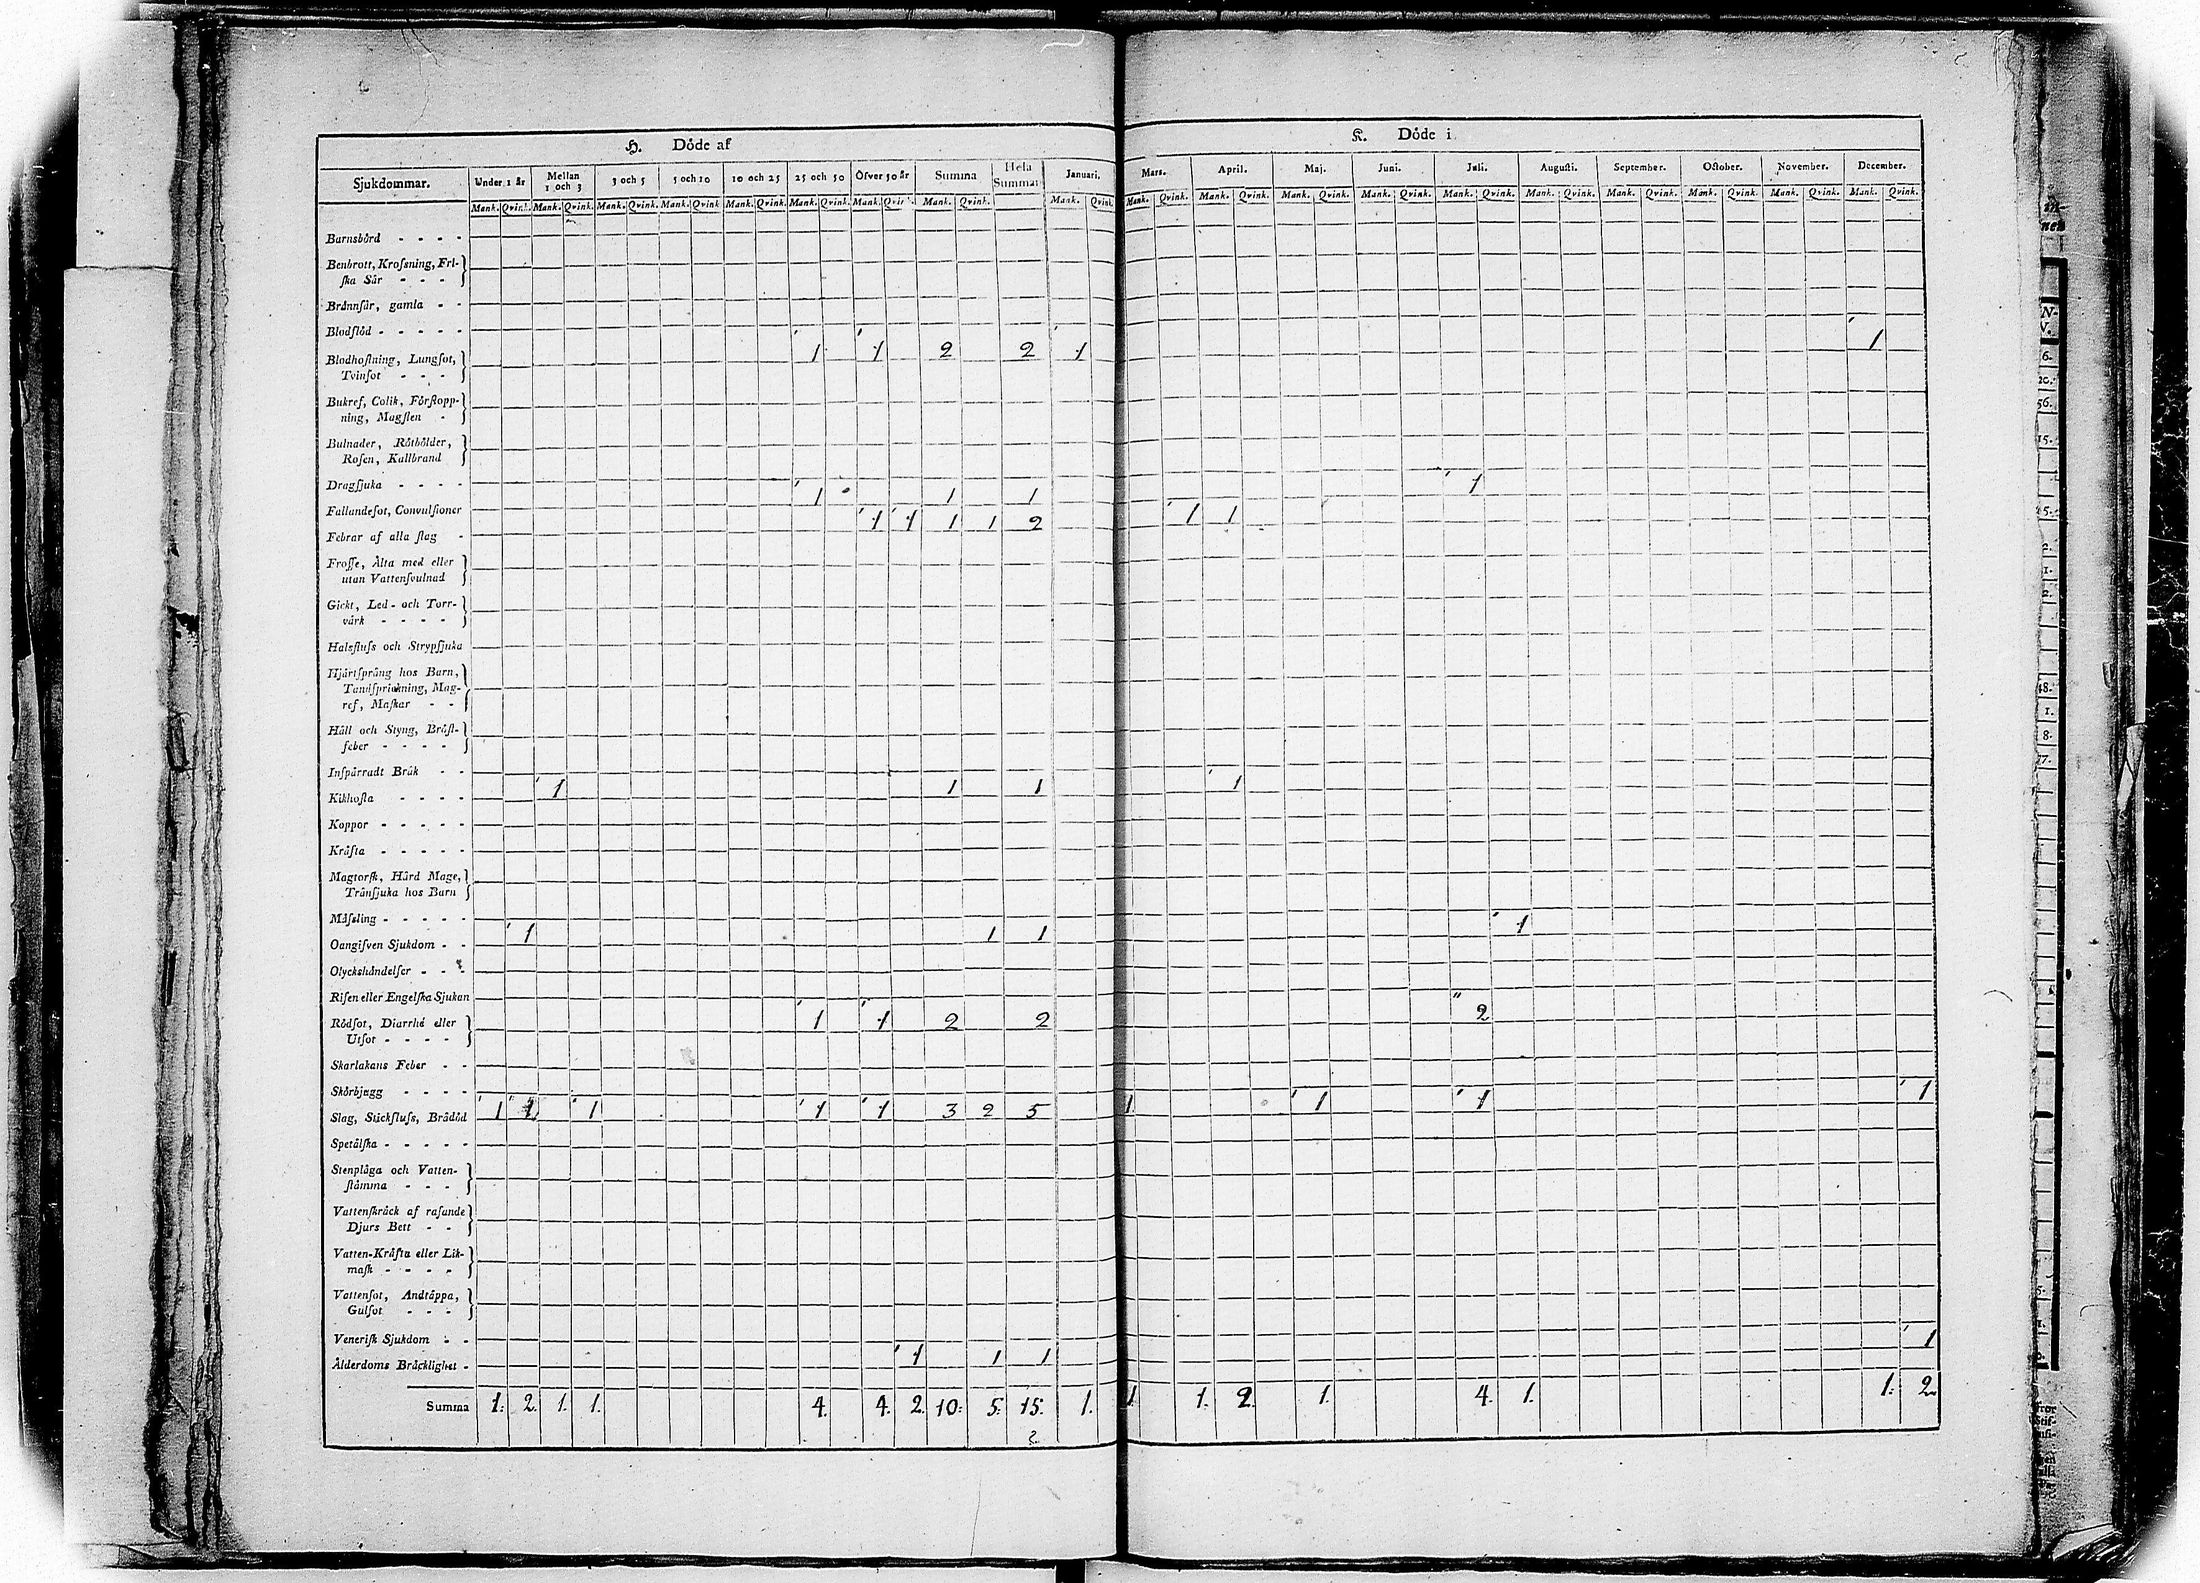 H. Döde af
K. Döde i
Sjukdommar. Under 1 år Mellan 1 och 3 3 och 5 5 och 10 10 och 25 25 och 50 Öfver 50 år Summa Hela Summan Januari. Mars. April. Maj. Juni. Juli. Augusti. September. October. November. December.
Mank. Qvink. Mank. Qvink. Mank. Qvink. Mank. Qvink Mank. Qvink. Mank. Qvink. Mank. Qvink. Mank. Qvink. Mank. Qvink. Mank. Qvink. Mank. Qvink. Mank. Qvink. Mank. Qvink. Mank. Qvink. Mank. Qvink. Mank. Qvink. Mank. Qvink. Mank. Qvink. Mank. Qvink.
Barnsbörd - - - -
Benbrott, Krosning, Fri-
ska Sår - - -
Brännsår, gamla - -
Blodflöd - - - - -
Blodhostning, Lungsot, 1 1 2 2 1 1
Tvinsot - - -
Bukref, Colik, Förstopp-
ning, Magsten -
Bulnader, Rötbölder,
Rosen, Kallbrand
Dragsjuka - - - - 1 1 1 1
Fallandesot, Convulsioner 1 1 1 1 2 1 1
Febrar af alla slag -
Frosse, Älta med eller
utan Vattensvulnad
Gickt, Led- och Torr-
värk - - - -
Halsfluss och Strypsjuka
Hjärtsprång hos Barn,
Tandsprickning, Mag-
ref, Maskar - -
Håll och Styng, Bröst-
feber - - - -
Inspärradt Bråk - -
Kikhosta - - - - 1 1 1 1
Koppor - - - - -
Kräfta - - - - -
Magtorsk, Hård Mage,
Trånsjuka hos Barn
Mässling - - - - -
Oangifven Sjukdom - - 1 1 1 1
Olyckshändelser - - -
Risen eller Engelska Sjukan
Rödsot, Diarrhé eller 1 1 2 2 2
Utsot - - - -
Skarlakans Feber - -
Skörbjugg - - - -
Slag, Stickfluss, Brådöd 1 1 1 1 1 3 2 5 1 1 1 1
Spetälska - - - - -
Stenplåga och Vatten-
stämma - - -
Vattenskräck af rasande
Djurs Bett - -
Vatten-Kräfta eller Lik-
mask - - - -
Vattensot, Andtäppa,
Gulsot - - -
Venerisk Sjukdom - -
Ålderdoms Bräcklighet - 1 1 1 1
Summa 1. 2. 1. 1. 4. 4. 2. 10. 5. 15. 1. 1. 1. 2. 1. 4. 1. 1. 2.